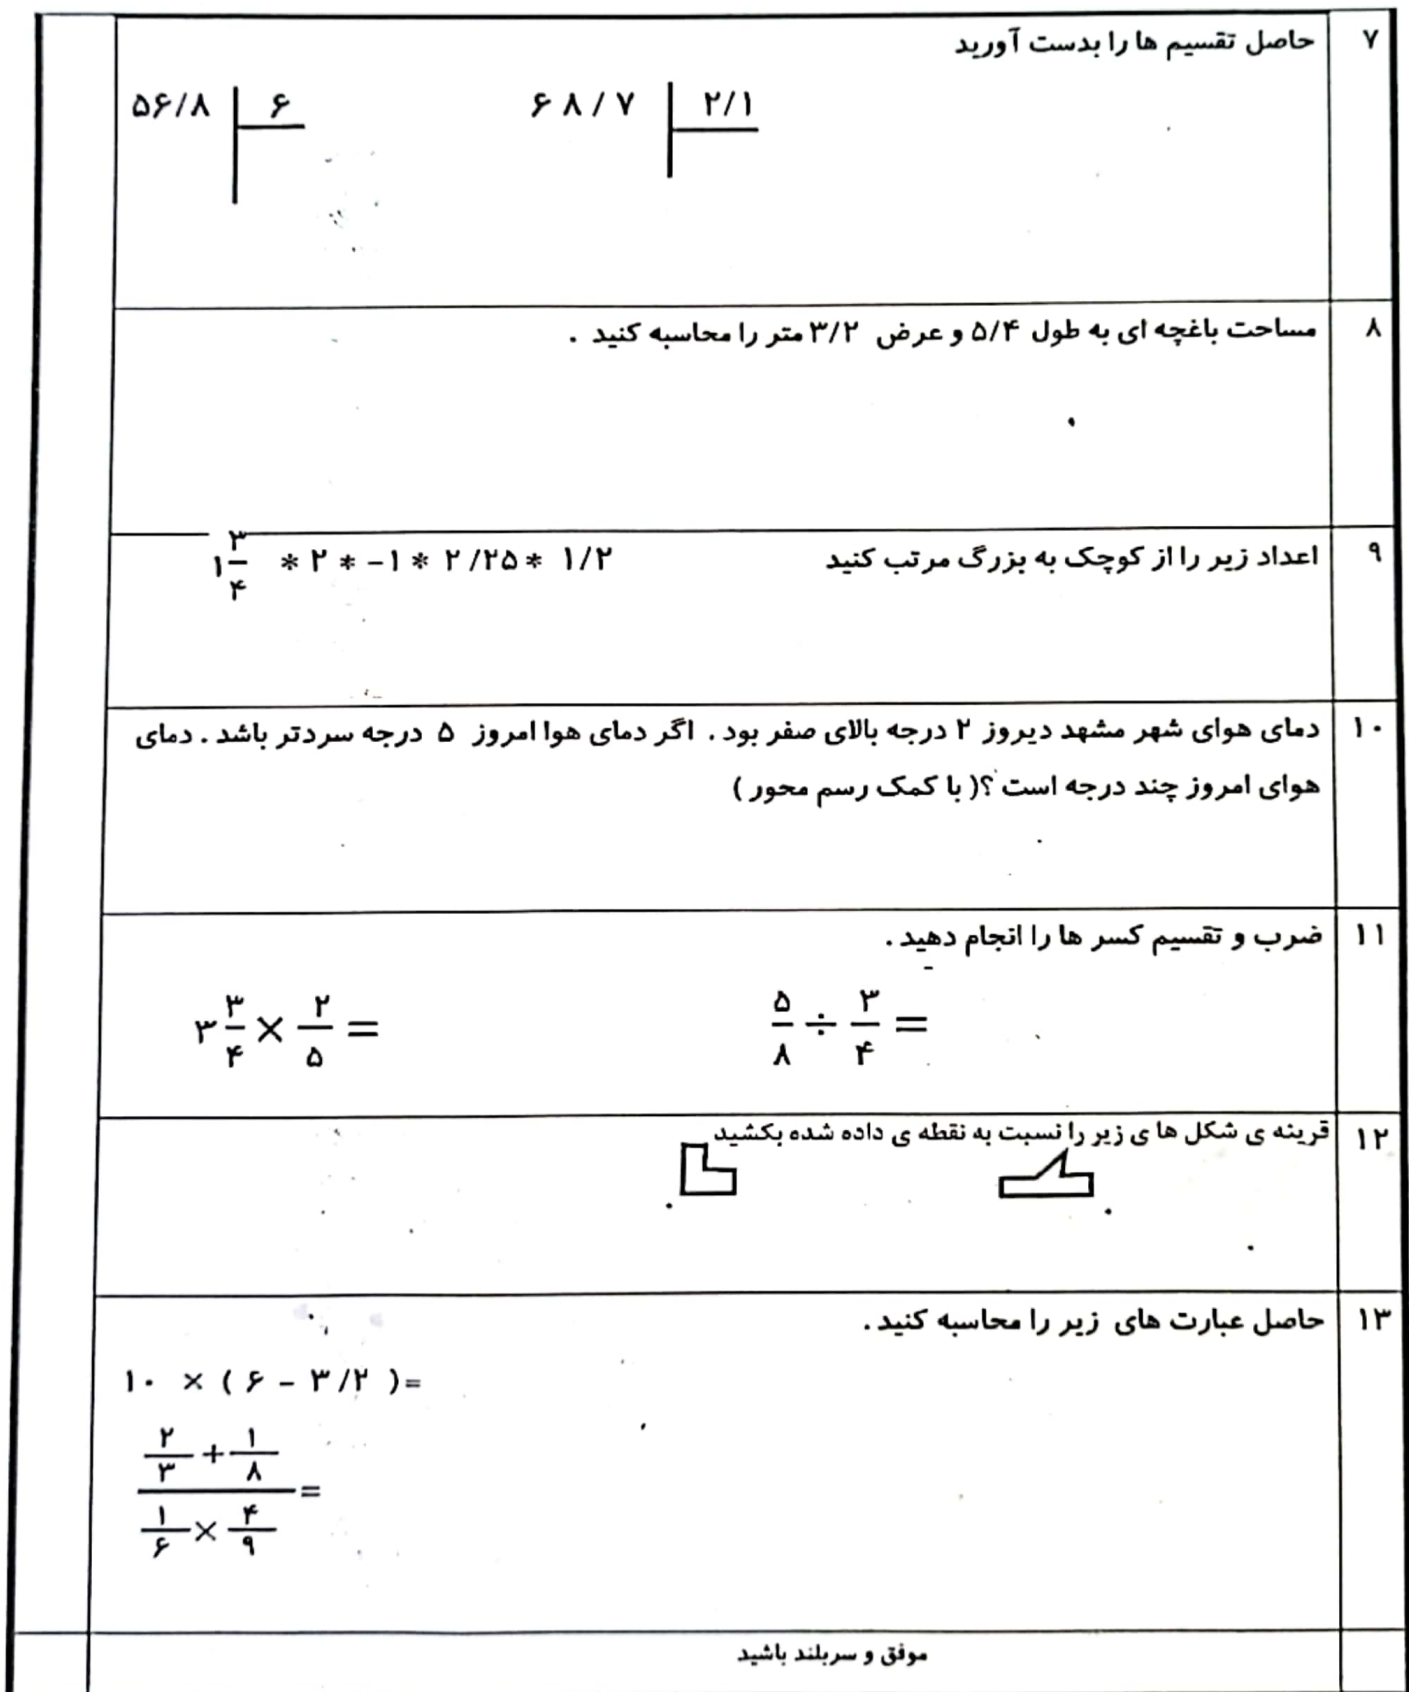 ۷ حاصل تقسیم ها را بدست آورید
۵۶/۸ ۶ ۶۸/۷ ۲/۱
۸ مساحت باغچه ای به طول ۵/۴ و عرض ۳/۲ متر را محاسبه کنید .
۹ اعداد زیر را از کوچک به بزرگ مرتب کنید ۱ ۳/۴ * ۲ * -۱ * ۲/۲۵ * ۱/۲
۱۰ دمای هوای شهر مشهد دیروز ۲ درجه بالای صفر بود . اگر دمای هوا امروز ۵ درجه سردتر باشد . دمای
هوای امروز چند درجه است ؟( با کمک رسم محور )
۱۱ ضرب و تقسیم کسر ها را انجام دهید .
۳ ۳/۴ × ۲/۵ = ۵/۸ ÷ ۳/۴ =
۱۲ قرینه ی شکل ها ی زیر را نسبت به نقطه ی داده شده بکشید
۱۳ حاصل عبارت های زیر را محاسبه کنید .
۱۰ × ( ۶ - ۳/۲ )=
۲/۳ + ۱/۸
=
۱/۶ × ۴/۹
موفق و سربلند باشید